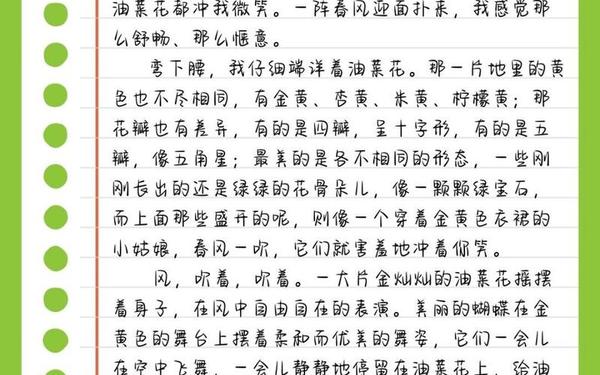 油菜花都冲我微笑。一阵春风迎面扑来，我感觉那
么舒畅、那么惬意。
弯下腰，我仔细端详着油菜花。那一片地里的黄
色也不尽相同，有金黄、杏黄、米黄、柠檬黄；那
花瓣也有差异，有的是四瓣，呈十字形，有的是五
瓣，像五角星；最美的是各不相同的形态，一些刚
刚长出的还是绿绿的花骨朵儿，像一颗颗绿宝石，
而上面那些盛开的呢，则像一个穿着金黄色衣裙的
小姑娘，春风一吹，它们就害羞地冲着你笑。
风，吹着，吹着。一大片金灿灿的油菜花摇摆
着身子，在风中自由自在的表演。美丽的蝴蝶在金
黄色的舞台上摆着柔和而优美的舞姿，它们一会儿
在空中飞舞，一会儿静静地停留在油菜花上，给油